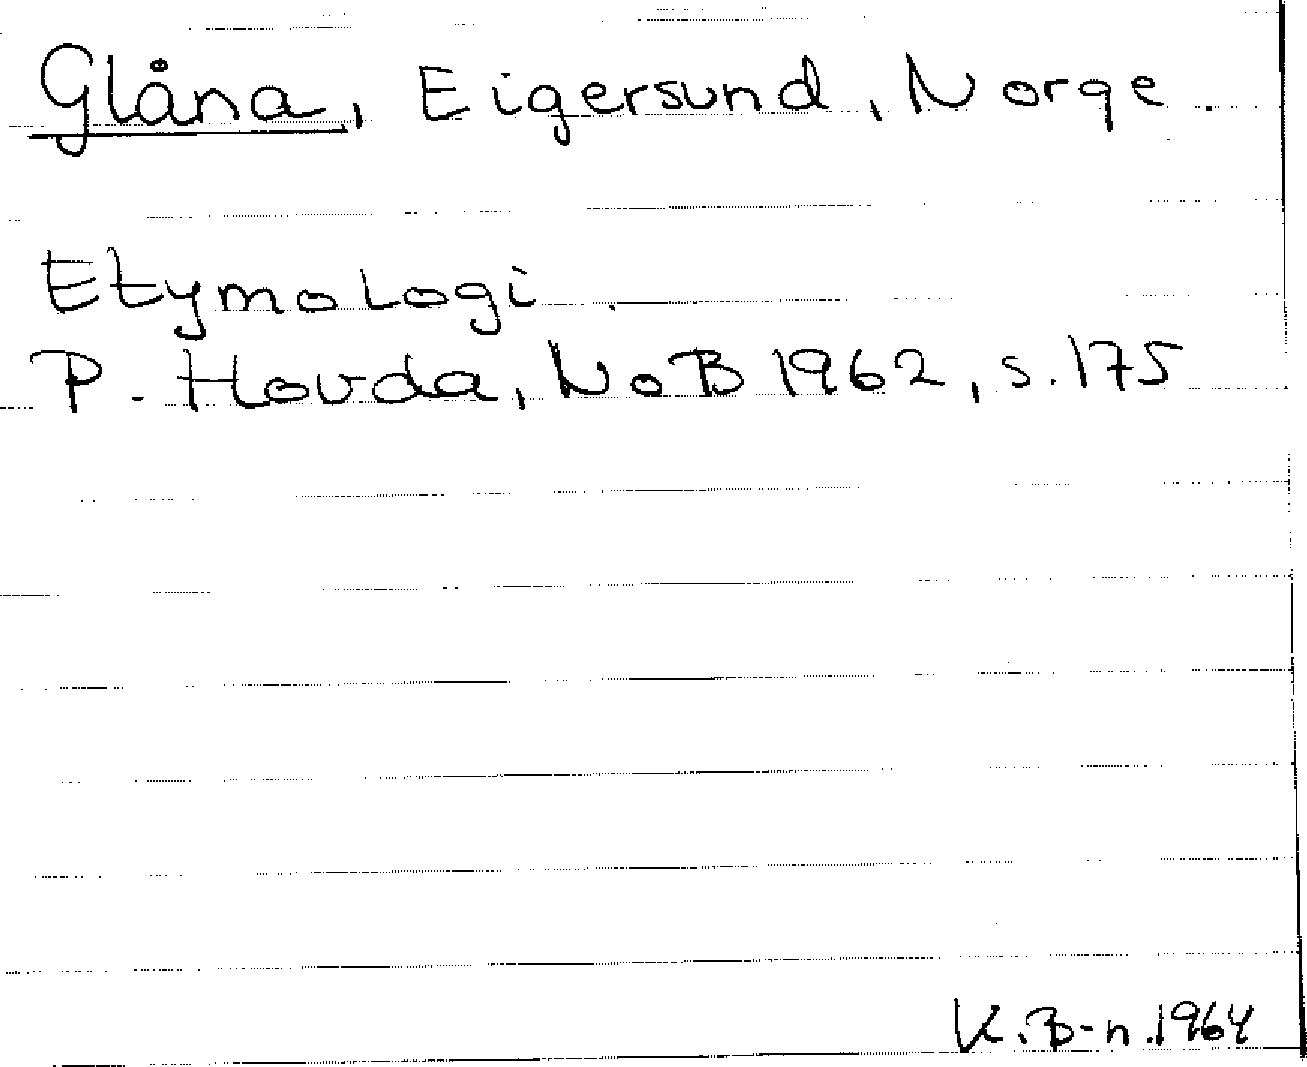 Glåna, Eigersund, Norge.
Etymologi.
P. Hovda, NoB 1962, s. 175
K. B-n. 1964